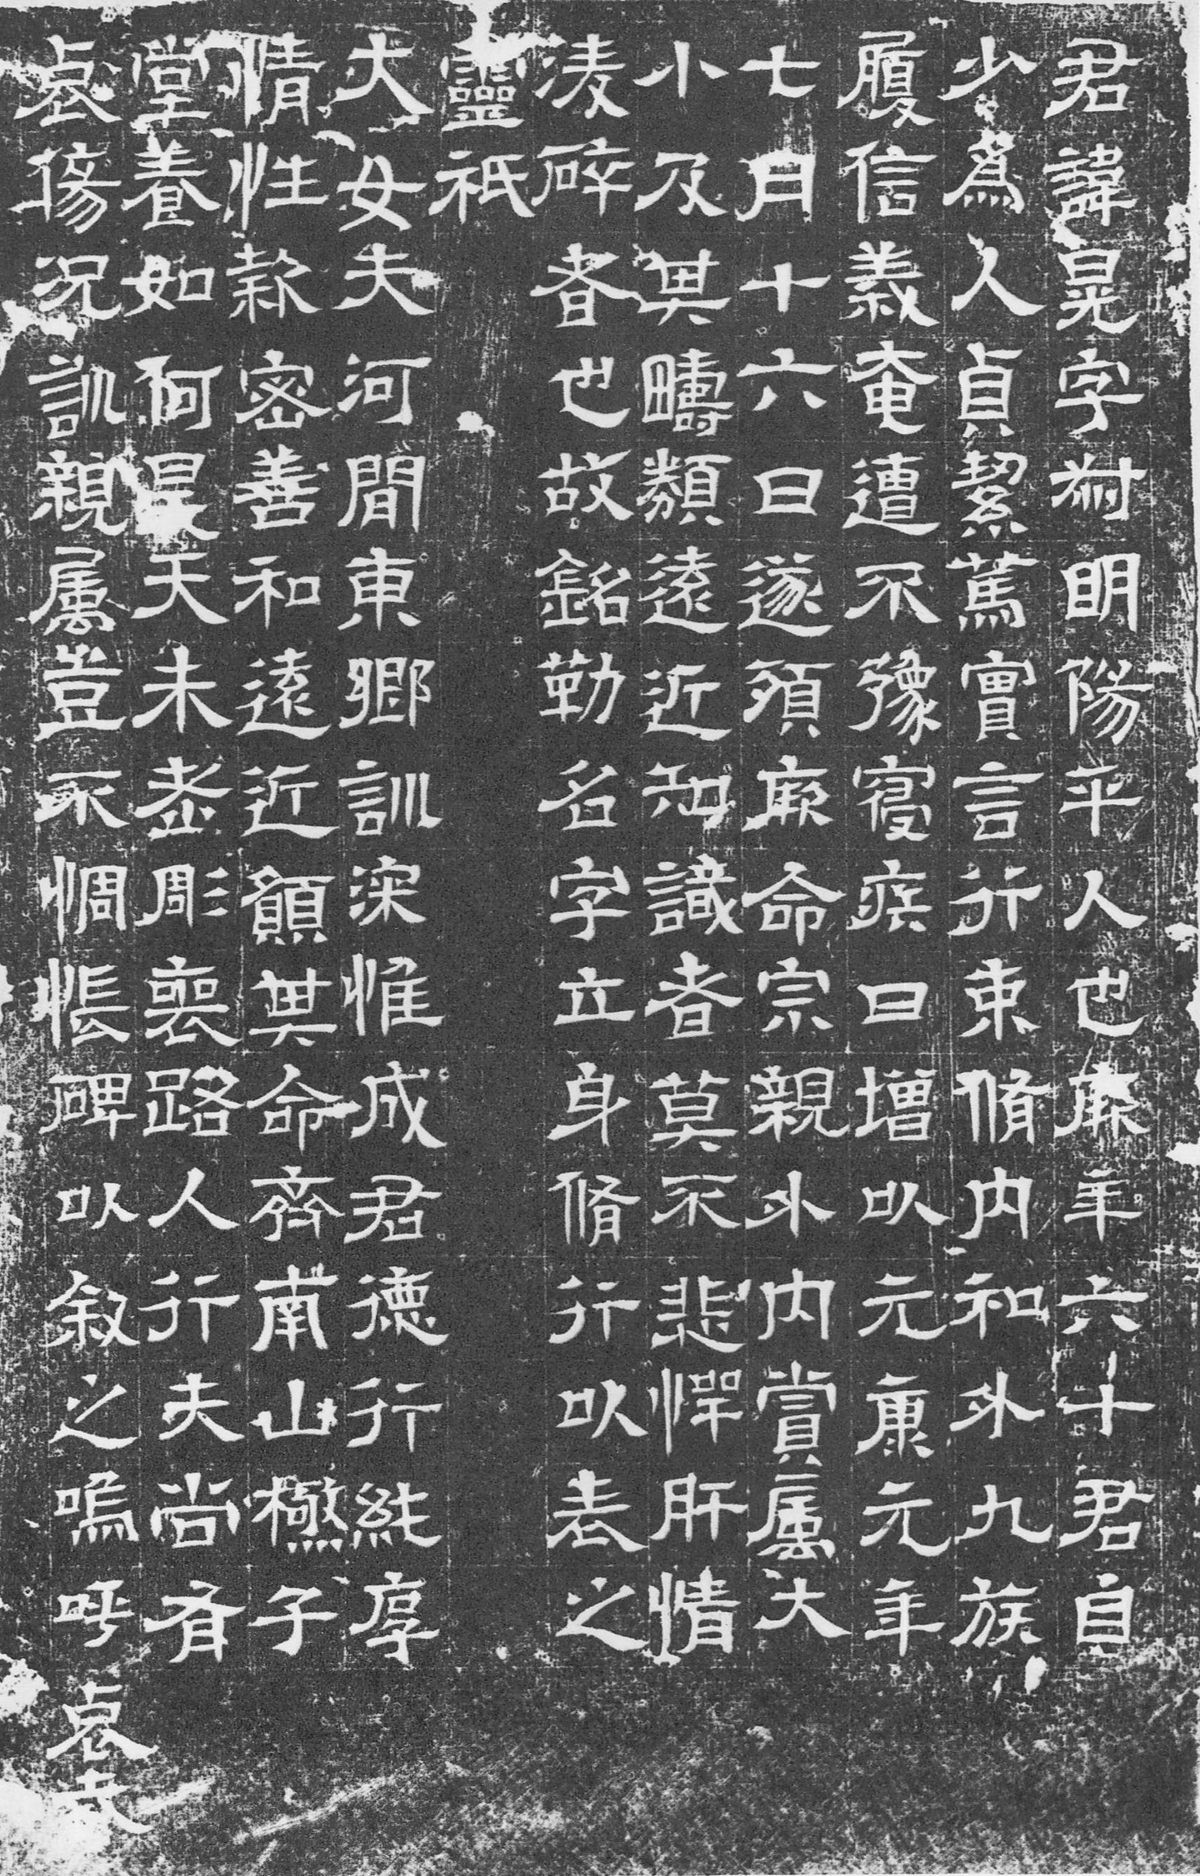 君諱晃字叔明陽平人也厥年六十君自
少爲人貞絜篤實言行束脩内和外九族
履信義奄遭不豫寑疾日增以元康元年
七月十六日遂殞厥命宗親外内賞屬大
小及其疇類遠近知識者莫不悲惮肝情
淩碎者也故銘勒名字立身脩行以表之
靈祇
大女夫河間東鄉訓深惟成君德行純厚
情性款密善和遠近願其命齊南山極子
堂養如何昊天未老彫喪路人行夫尚有
哀傷況訓親屬豈不惆悵碑以叙之嗚呼哀哉